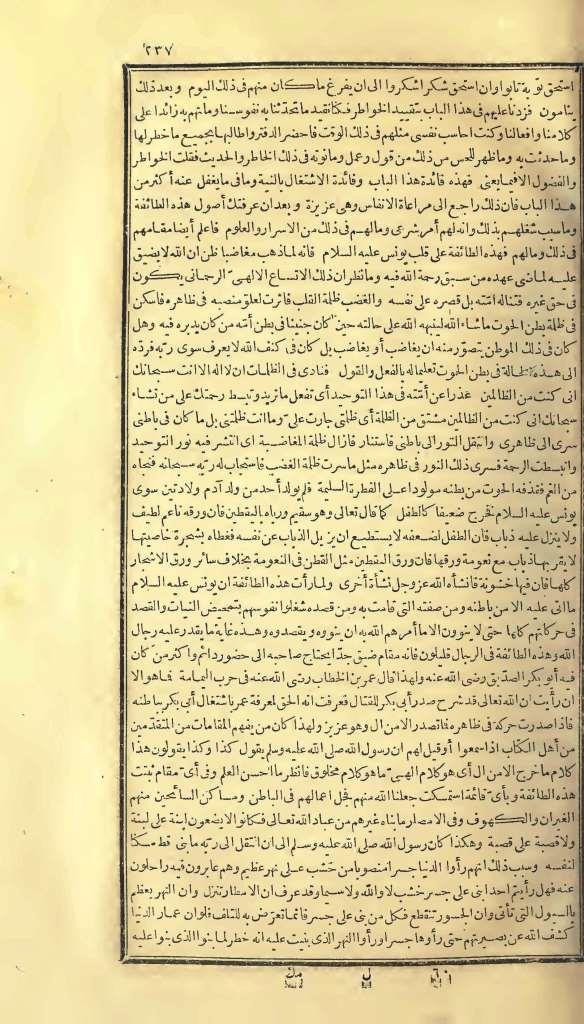 ٢٣٧
استحق توبة تابوا وان استحق شكرا شكروا الى ان يفرغ ما كان منهم فى ذلك اليوم وبعد ذلك
ينامون فزدنا عليهم فى هذا الباب بتقييد الخواطر فكنا نقيد ما تحدثنا به نفوسنا وما تهم به زائدا على
كلامنا وأفعالنا وكنت احاسب نفسى مثلهم فى ذلك الوقت فاحضر الدفتر واطالبها بجميع ما خطر لها
وما حدثت به وما ظهر للحس من ذلك من قول وعمل وما نوته فى ذلك الخاطر والحديث فقلت الخواطر
والفضول الا فيما يعنى فهذه فائدة هذا الباب وفائدة الاشتغال بالنية وما فى ما يغفل عنه أكثر من
هذا الباب فان ذلك راجع الى مراعاة الانفاس وهى عزيزة وبعد ان عرفتك أصول هذه الطائفة
وما سبب شغلهم بذلك وانه لهم أمر شرعى وما لهم فى ذلك من الاسرار والعلوم فاعلم أيضا مقامهم
فى ذلك وما لهم فهذه الطائفة على قلب يونس عليه السلام فانه لما ذهب مغاضبا ظن ان الله لا يضيق
عليه لما مضى عهده من سبق رحمة الله فيه وما نظر ان ذلك الاتساع الالهى الرحمانى يكون
فى حق غيره فتناله امته بل قصره على نفسه والغضب ظلمة القلب فأثرت لعلو منصبه فى ظاهره فاسكن
فى ظلمة بطن الحوت ما شاء الله لينبهه الله على حالته حين كان جنينا فى بطن أمه من كان يدبره فيه وهل
كان فى ذلك الموطن يتصور منه ان يغاضب أو يغاضب بل كان فى كنف الله لا يعرف سوى ربه فرده
الى هذه الحالة فى بطن الحوت تعليما له بالفعل والقول فنادى فى الظلمات ان لا اله الا انت سبحانك
انى كنت من الظالمين عذرا عن أمته فى هذا التوحيد أى تفعل ما تريد وتبسط رحمتك على من تشاء
سبحانك انى كنت من الظالمين مشتق من الظلمة أى ظلمتى جارت على وما انت ظلمتنى بل ما كان فى باطنى
سرى الى ظاهرى وانتقل النور الى باطنى فاستنار فازال ظلمة المغاضبة اى انتشر فيه نور التوحيد
وانبسطت الرحمة فسرى ذلك النور فى ظاهره مثل ما سرت ظلمة الغضب فاستجاب له ربه سبحانه فنجاه
من الغم فقذفه الحوت من بطنه مولودا على الفطرة السليمة فلم يولد أحد من ولد آدم ولادتين سوى
يونس عليه السلام فخرج ضعيفا كالطفل كما قال تعالى وهو سقيم ورباه باليقطين فان ورقه ناعم لطيف
ولا ينزل عليه ذباب فان الطفل لضعفه لا يستطيع ان يزيل الذباب عن نفسه فغطاه بشجرة خاصيتها
لا يقربها ذباب مع نعومة ورقها فان ورق اليقطين مثل القطن فى النعومة بخلاف سائر ورق الاشجار
كلها فان فيها خشونة فانشأه الله عز وجل نشأة أخرى ولما رأت هذه الطائفة ان يونس عليه السلام
ما اتى عليه الا من باطنه ومن صفته التى قامت به ومن قصده شغلوا نفوسهم بتمحيص النيات والقصد
فى حركاتهم كلها حتى لا ينوون الا ما أمرهم الله به ان ينووه ويقصدوه وهذه غاية ما يقدر عليه رجال
الله وهذه الطائفة فى الرجال قليلون فانه مقام ضيق جدا يحتاج صاحبه الى حضور دائم واكثر من كان
فيه أبو بكر الصديق رضى الله عنه ولهذا قال عمر بن الخطاب رضى الله عنه فى حرب اليمامة فما هو الا
ان رأيت ان الله تعالى قد شرح صدر أبى بكر للقتال فعرفت انه الحق لمعرفة عمر باشتغال أبى بكر بباطنه
فاذا صدرت حركة فى ظاهره فما تصدر الا من ال وهو عزيز ولهذا كان من يفهم المقامات من المتقدمين
من أهل الكتاب اذا سمعوا أو قيل لهم ان رسول الله صلى الله عليه وسلم يقول كذا وكذا يقولون هذا
كلام ما خرج الا من ال أى هو كلام الهى ما هو كلام مخلوق فانظر ما احسن العلم وفى أى مقام ثبتت
هذه الطائفة وبأى قائمة استمسكت جعلنا الله منهم فجل اعمالهم فى الباطن ومساكن السائحين منهم
الغيران والكهوف وفى الامصار ما بناه غيرهم من عباد الله تعالى فكانوا لا يضعون لبنة على لبنة
ولا قصبة على قصبة وهكذا كان رسول الله صلى الله عليه وسلم الى ان انتقل الى ربه ما بنى قط مسكنا
لنفسه وسبب ذلك انهم رأوا الدنيا جسرا منصوبا من خشب على نهر عظيم وهم عابرون فيه راحلون
عنه فهل رأيتم احدا بنى على جسر خشب لا والله ولا سيما وقد عرف ان الامطار تنزل وان النهر يعظم
بالسيول التى تأتى وان الجسور تنقطع فكل من بنى على جسر فانما تعرض به للتلف فلو ان عمار الدنيا
كشف الله عن بصيرتهم حتى رأوها جسرا ورأوا النهر الذى بنيت عليه انه خطر لما بنوا الذى بنوا عليه